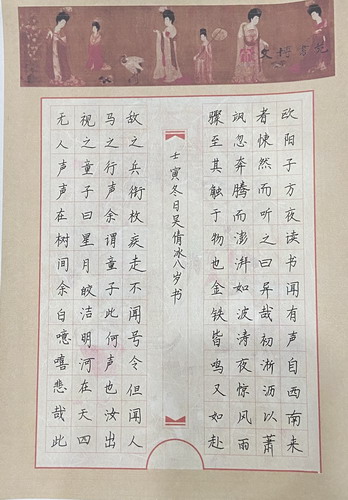 文博書
欧阳子方夜读书闻有声自西南来
者悚然而听之曰异哉初淅沥以萧
飒忽奔腾而澎湃如波涛夜惊风雨
骤至其触于物也金铁皆鸣又如赴
壬寅冬日吴倩冰八岁书
敌之兵衔枚疾走不闻号令但闻人
马之行声余谓童子此何声也汝出
视之童子曰星月皎洁明河在天四
无人声声在树间余白噫嘻悲哉此